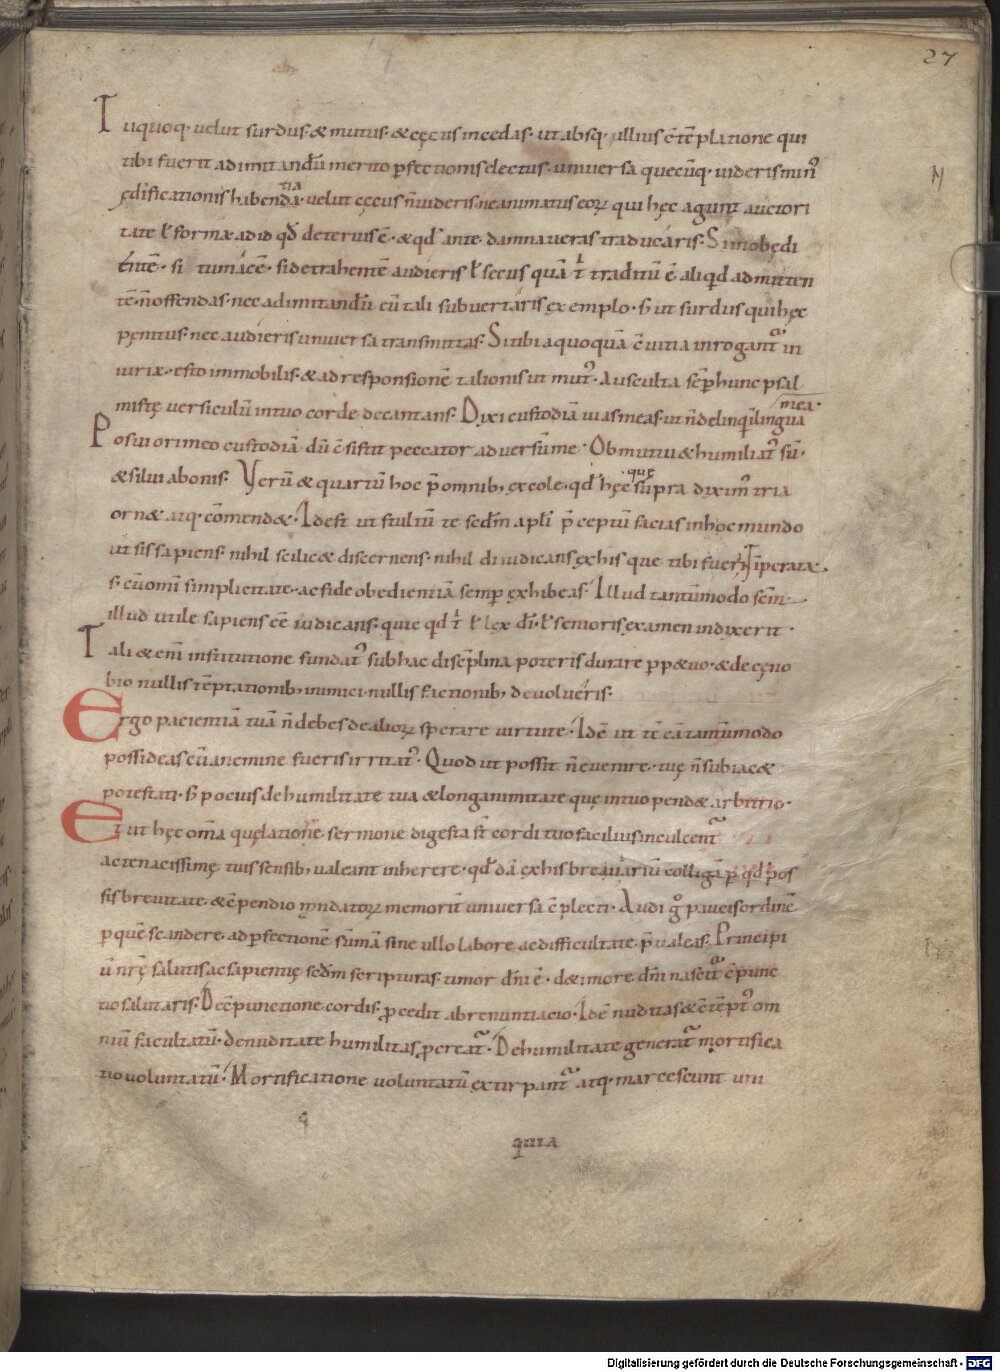 27
Tuquoq· velut surdus· & mutus· & cęcus incedas· ut absq· ullius c̄tēplatione qui
tibi fuerit ad imitandū merito p̱fectionis electus· universa quecūq· videris minꝰ
ędificationis habentia· velut cęcus n̄ videris· ne animatus eoꝝ qui hęc agunt auctori
tate ł forma· ad id qđ deterius ē· & qđ ante damnaveras traducaris· Si inobędi
entē· si tumacē· si detrahentē audieris ł secus quā t̄ traditū ē aliqđ admitten
tē· n̄ offendas· nec ad imitandū eū tali subvertaris exemplo· s; ut surdus qui hęc
pęnitus· nec audieris universa transmittas· Si tibi a quoquā c̄vitia inrogant̄ in
iuriæ· esto immobilis· & ad responsionē talionis ut mutꝰ· Ausculta sēp̱ hunc psal
mistę versiculū in tuo corde decantans· Dixi custodiā vias meas· ut n̄ delinquā lingua
mea·
Posui ori meo custodiā· dū c̄sistit peccator adversū me· Obmutui & humiliatꝰ sū·
& silui a bonis· Verū & quartū hoc p̄ omnib; excole· qđ hęc quę supra diximꝰ tria
ornæ atq· cōmendæ· Id est ut stultū te secđm apłi p̄ceptū facias in hoc mundo
ut sis sapiens· nihil scilicæ discernens· nihil diiudicans ex his que tibi fuerint imperata·
s; cū omī simplicitate· ac fide obedientiā semp̱ exhibeas· Illud tantūmodo scm̄
illud utile sapiens eē iudicans· quic qđ t̄ ł lex dī· ł senioris examen indixerit·
Tali & enī institutione fundatꝰ sub hac discēplina poteris durare p̱pævo· & de cęno
bio nullis tēptationib; inimici· nullis factionib; devolveris·
Ergo pacientiā tuā n̄ debes de alioꝝ sperare virtute· Idē ut tē eā tantūmodo
possideas cū a nemine fueris irritatꝰ· Quod ut possit n̄ evenire· tuę n̄ subiacæ
potestati· s; pocius de humilitate tua & longanimitate quę in tuo pendæ arbitrio·
Et ut hęc om̄a quę latione sermone digesta st̄ cordi tuo facilius inculcent̄
ac tenacissimę tuis sensib; valeant inherere· qđdā ex his breviariū colligā p̱ qđ pos
sis brevitate· & c̄pendio mandatoꝝ memorit̄ universa c̄plecti· Audi g̊ paucis ordinē
p̱ quē scandere ad p̱fectionē sūmā sine ullo labore ac difficultate p̄valeas· Principi
ū nrę̄ salutis ac sapientię secđm scripturas timor dn̄i ē· de timore dn̄i nascit̄ c̄punc
tio salutaris· De c̄punctione cordis p̱cedit abrenuntiacio· Idē nuditas & c̄tēptꝰ om
niū facultatū· De nuditate humilitas p̱creat̄· De humilitate generat̄ mortifica
tio voluntatū· Mortificatione voluntatū extirpant̄ atq· marcescunt uni
quia
Digitalisierung gefördert durch die Deutsche Forschungsgemeinschaft - DFG